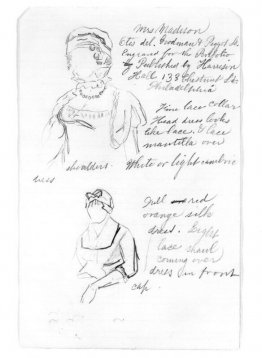 Mrs Madison
Otis del. Goodman & Piggot Sc.
Engraved for the Portfolio
by Published by Harrison
Hall 133 Chestnut St.
Philadelphia
Fine lace collar
Head dress looks
like lace. Lace
mantilla over
shoulders. White or light cambric
dress
Full red
orange silk
dress.
lace shawl
coming over
dress in front
cap